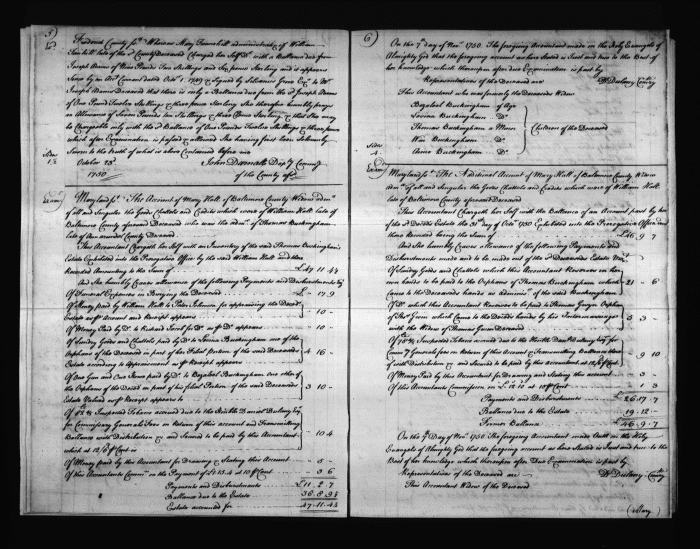 5)
Frederick County ss. Whereas Mary Tannehill administratrix of William
Tannehill late of the sd County Deceased Charged her Self with a Ballance due from
Joseph Adams of Nine Pounds Ten Shillings and Six pence Sterling and it appears
Joseph Adams Deceased that there is only a Ballance due from the sd Joseph Adams
of One Pound Twelve Shillings & three pence Sterling She therefore humbly prays
an Allowance of Seven Pounds ten Shillings & three Pence Sterling & that She may
be Chargeable only with the sd Ballance of One Pound Twelve Shillings & three pence
which after Examination is passed & allowed She having first been Solemnly
Sworn to the truth of what is above Contained before me
October 23d
1750
John Darnall Dep.y Commry
of the County afd
Maryland ss. The Account of Mary Hall of Baltimore County Widow admx
of all and singular the Goods Chattels and Credits which were of William Hall late of
Baltimore County aforesaid Deceased who was the admr of Thomas Buckingham
late of the County Deceased
This Accountant Chargeth her Self with an Inventory of the said Thomas Buckingham's
Estate Exhibited into the Prerogative Office by the said William Hall and there
Recorded Amounting to the Sum of £47.11.4½
And She humbly Craves allowance of the following Payments and Disbursements Viz
Of Funeral Expences in Burying the Deceased £ - 17.9
Of Money paid by William Hall to Peter Johnson for appraizing the Deceds
Estate as pr Account and Receipt appears - 10 -
Of Money Paid by Do to Richard for Do as pr Do appears - 10 -
Of Sundry Goods and Chattels paid by Do to Lovina Buckingham one of the
Orphans of the Deceased in part of her Filial Portion of the said Deceaseds
Estate according to Appraisement as pr Receipt appears 4 16 -
Of One Gun and One Horse paid by Do to Bezaleel Buckingham one other of
the Orphans of the Deced in part of his Filial Portion of the said Deceaseds
Estate Valued as pr Receipt appears to 3 10 -
Of Inspected Tobacco accrued due to the Honble Daniel Dulany Esqr
for Commissary Generals Fees on Return of this account and Transmitting
Ballance with Distribution & and Secured to be paid by this Accountant
which at 12/6 pr Ct is - 10 4
Of Money paid by this Accountant for Drawing & Stating this Account - 5 -
Of this Accountants Commn on the Payment of at 10 pr Cent - 3 6
Payments and Disbursements £11.2.7
Ballance due to the Estate 36.8.9½
Estate accounted for 47.11.4½
6)
On the 7th day of Novr 1750. The foregoing Accountant made on the Holy Evangels of
Almighty God that the foregoing account as here Stated is Just and true to the Best of
her knowledge which thereupon after due Examination is past by
Representatives of the Deceased are Dl Dulany Comry
This Accountant who was formerly the Deceaseds Widow
Bezaleel Buckingham of Age
Lovina Buckingham Do
Thomas Buckingham a Minor
Wm Buckingham Do
Anne Buckingham Do
Children of the Deceased
Maryland ss. The Additional Account of Mary Hall of Baltimore County Widow
admx of all and singular the Goods Chattels and Credits which were of William Hall
late of Baltimore County aforesaid Deceased
This Accountant Chargeth her Self with the Ballance of an Account past by her
of the sd Deceds Estate the 31st day of Octor 1750 Exhibited into the Prerogative Office and
there Recorded being the Sum of £46.9.7
And She humbly Craves allowance of the following Payments and
Disbursements made and to be made out of the sd Deceaseds Estate Viz
Of Sundry Goods and Chattels which this Accountant Reserves in her
own hands to be paid to the Orphans of Thomas Buckingham which
came to the Deceaseds hands as adminr of the said Buckingham 21 - 6
Of Do which this Accountant Reserves to be paid to Thomas Gwyn Orphan
of Thos Gwin which came to the Deceds hands by his Intermarriage
with the Widow of Thomas Gwin Deceased 3 3 -
Of Inspected Tobacco accrued due to the Honble Danl Dulany Esqr for
Commy Generals fees on Return of this Account & Transmitting Ballance thereof
with Distribution & and Secured to be paid by this accountant at 12/6 pr Ct - 9 10
Of Money Paid by this Accountant for Drawing and Stating this account - 3 -
Of this Accountants Commission on £ at 10 pr Cent - 1 3
Payments and Disbursements £26.17.7
Ballance due to the Estate 19.12 -
Former Ballance £46.9.7
On the 7th day of Novr 1750. The foregoing Accountant made Oath on the Holy
Evangels of Almighty God that the foregoing account as here Stated is Just and true to the
Best of her knowledge which thereupon after Due Examination is past by
Representatives of the Deceased are Dl Dulany Comry
This Accountant Widow of the Deceased
(Mary